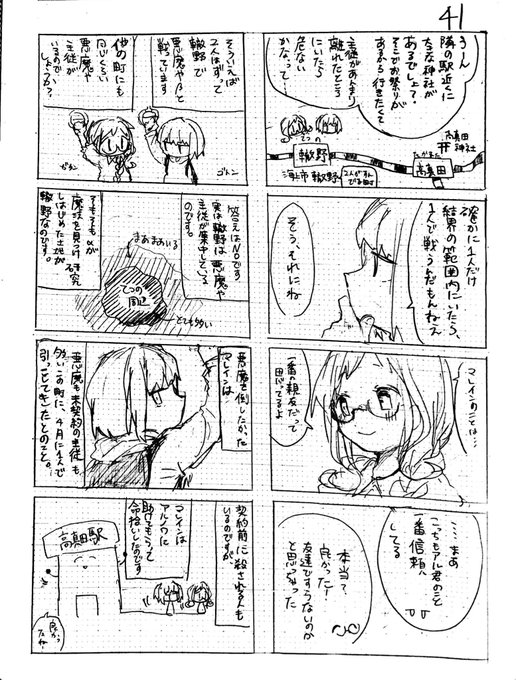 41
うーん
隣の駅近くに
大きな神社が
あるでしょ?
そこでお祭りが
あるから行きたくて
主従があんまり
離れたところ
にいたら
危ない
かなって…
高真田
神社
てつの
轍野
たかまた
高真田
海市 轍野
確かに1人だけ
結界の範囲内にいたら、
1人で戦うんだもんねぇ
そう、それにね
マレインのことは…
一番の親友だって
思ってるよ
……まあ
こっちもアル君のこと
一番信頼
してる
本当?
良かった!
友達ですらないのか
と思っちゃった
そういえば
2人はずって
轍野で
悪魔や〆と
戦っています
他の町にも
同じくらい
悪魔や
主従が
いるので
しょうか?
ガタン
ゴトン
答えはNOです
実は轍野は悪魔や
主従が集中している
のです。
まあまあいる
てつの
周辺
とても多い
そもそも〆が
魔法を見つけ研究
しはじめた土地が
轍野なのです。
悪魔を倒したかった
マレインは
悪魔も未契約の主従も
多いこの町に、4月に1人で
引っ越してきたとのこと。
契約前に殺される人も
いるのですが、
マレインは
アルノに
助けてもらって
命拾いしたのです
高真田駅
良かっ
たね!